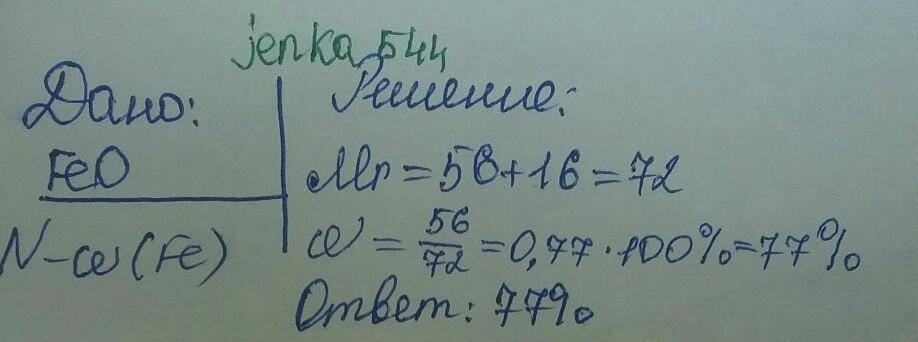 jenka 544
Дано:
FeO
N-ω(Fe)
Решение:
Mr = 56+16 = 72
ω = 56/72 = 0,77·100%=77%
Ответ: 77%